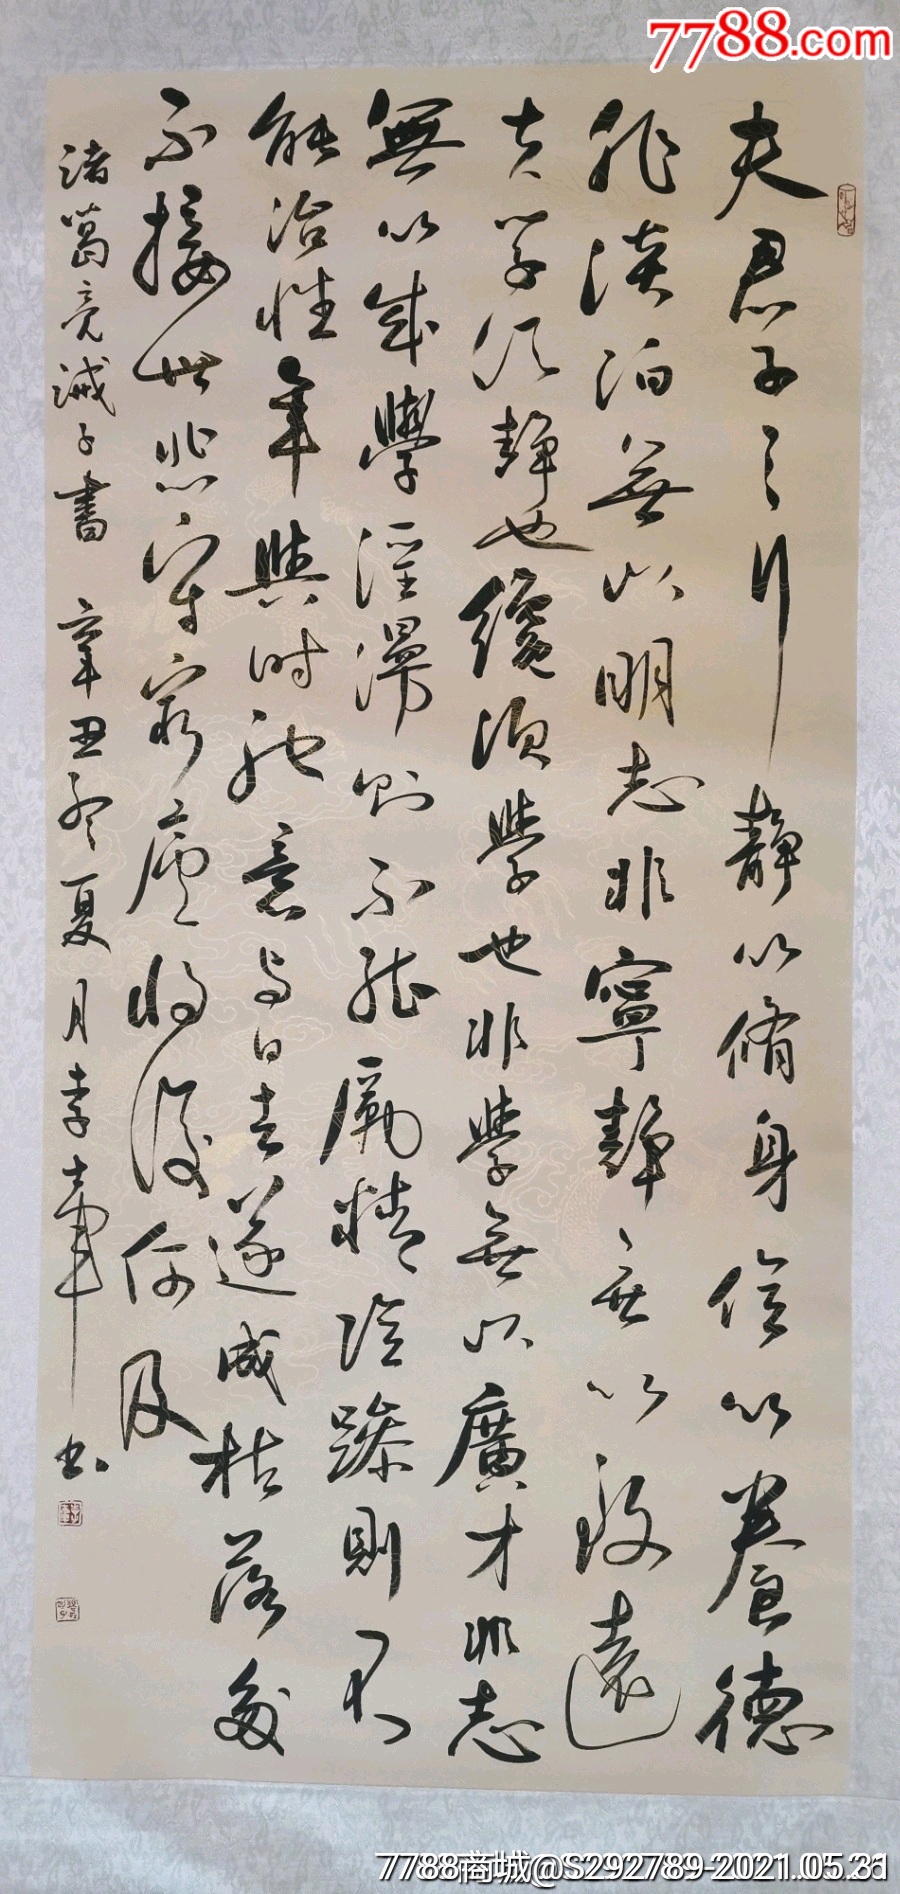 7788.com
夫君子之行靜以脩身儉以養德
非淡泊無以明志非寧靜無以致遠
夫學須靜也纔須學也非學無以廣才非志
無以成學淫漫則不能勵精險躁則不
能治性年與時馳意与日去遂成枯落多
不接世悲守窮廬將復何及
諸葛亮誡子書 辛丑年夏月李書
7788商城@S292789-2021.05.31